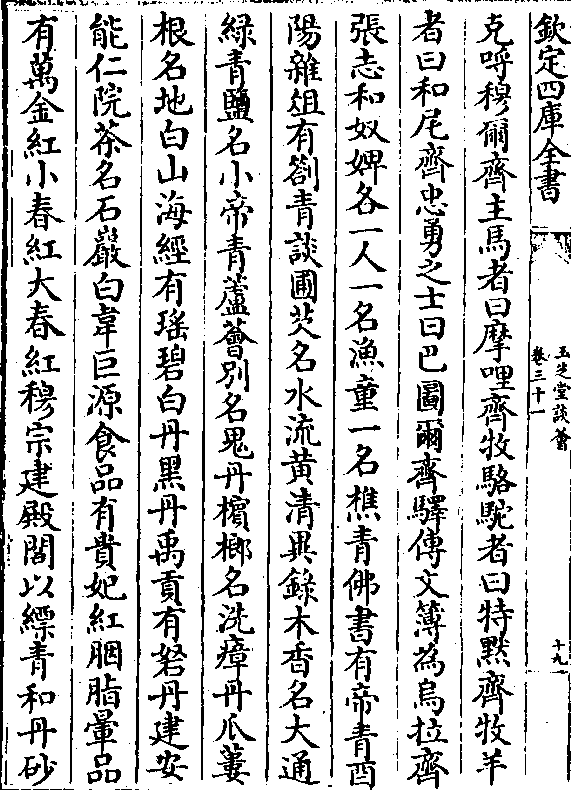 欽定四庫全書
玉芝堂談薈
卷三十一
十九
克呼穆爾齊主馬者曰摩哩齊牧駱駝者曰特黙齊牧羊
者曰和尼齊忠勇之士曰巴圖爾齊驛傳文簿為烏拉齊
張志和奴婢各一人一名漁童一名樵青佛書有帝青酉
陽雜俎有劄青談圃芡名水流黄清異錄木香名大通
綠青鹽名小帝青蘆薈別名鬼丹檳榔名洗瘴丹瓜蔞
根名地白山海經有瑶碧白丹黑丹禹貢有砮丹建安
能仁院茶名石巖白韋巨源食品有貴妃紅胭脂暈品
有萬金紅小春紅大春紅穆宗建殿閣以縹青和丹砂